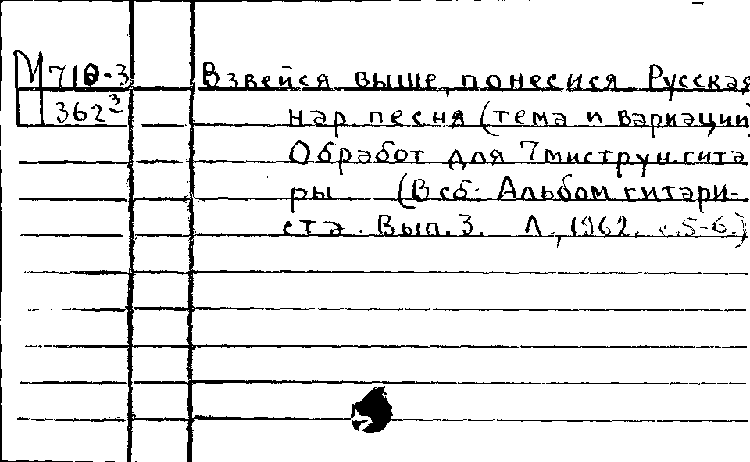 М 710-3
362³
Взвейся выше, понесися Русская
нар песня (тема и вариации
Обработ для 7миструн.гита
ры. (В сб: Альбом гитари-
ста. Вып.3. Л., 1962. с.5-6.)